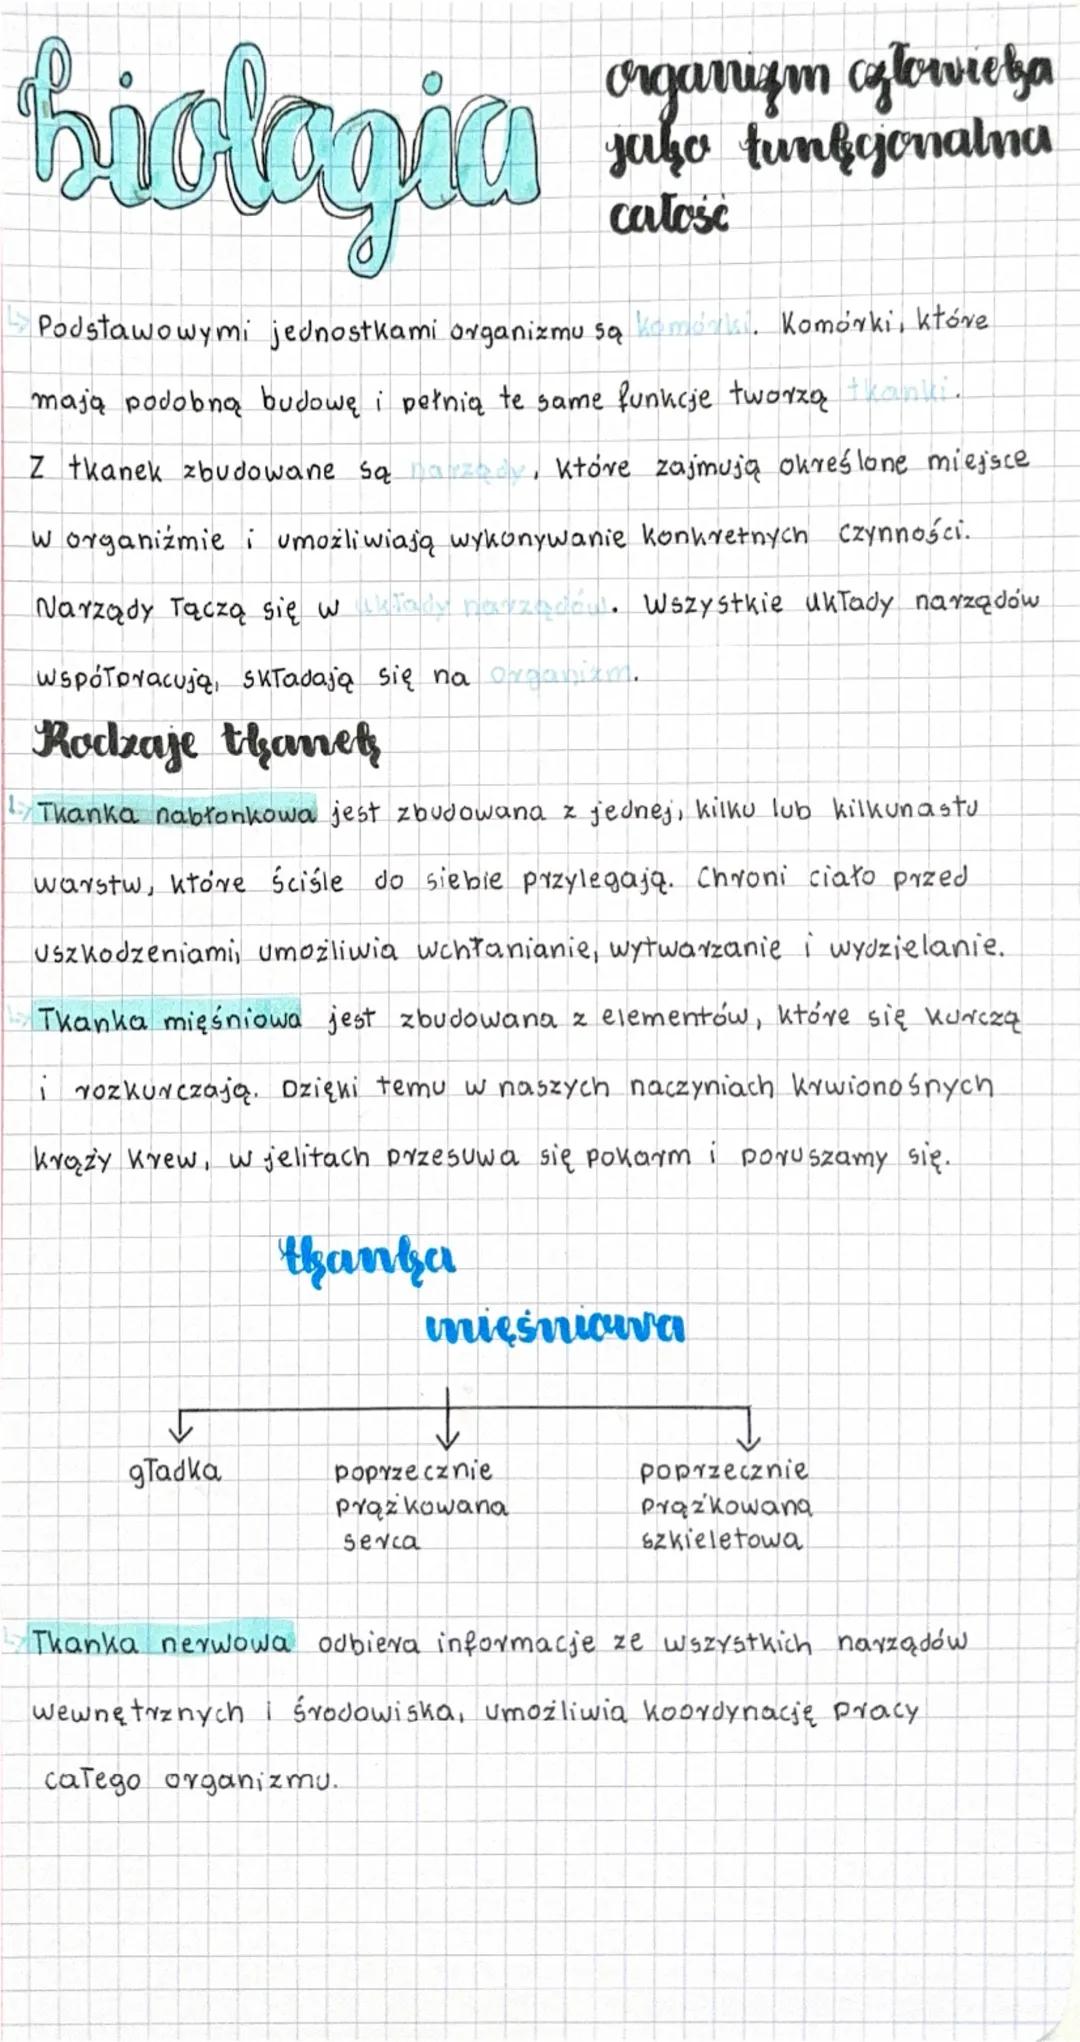 biologia
organizm człowieka
jako funkcjonalna
całość
↳ Podstawowymi jednostkami organizmu są komórki. Komórki, które
mają podobną budowę i pełnią te same funkcje tworzą tkanki.
Z tkanek zbudowane są narządy, które zajmują określone miejsce
w organiźmie i umożliwiają wykonywanie konkretnych czynności.
Narządy łączą się w układy narządów. Wszystkie układy narządów
współpracują, składają się na organizm.
Rodzaje tkanek
↳ Tkanka nabłonkowa jest zbudowana z jednej, kilku lub kilkunastu
warstw, które ściśle do siebie przylegają. Chroni ciało przed
uszkodzeniami, umożliwia wchłanianie, wytwarzanie i wydzielanie.
↳ Tkanka mięśniowa jest zbudowana z elementów, które się kurczą
i rozkurczają. Dzięki temu w naszych naczyniach krwionośnych
krąży krew, w jelitach przesuwa się pokarm i poruszamy się.
tkanka
mięśniowa
gładka
poprzecznie
prążkowana
serca
poprzecznie
prążkowana
szkieletowa
↳ Tkanka nerwowa odbiera informacje ze wszystkich narządów
wewnętrznych i środowiska, umożliwia koordynację pracy
całego organizmu.